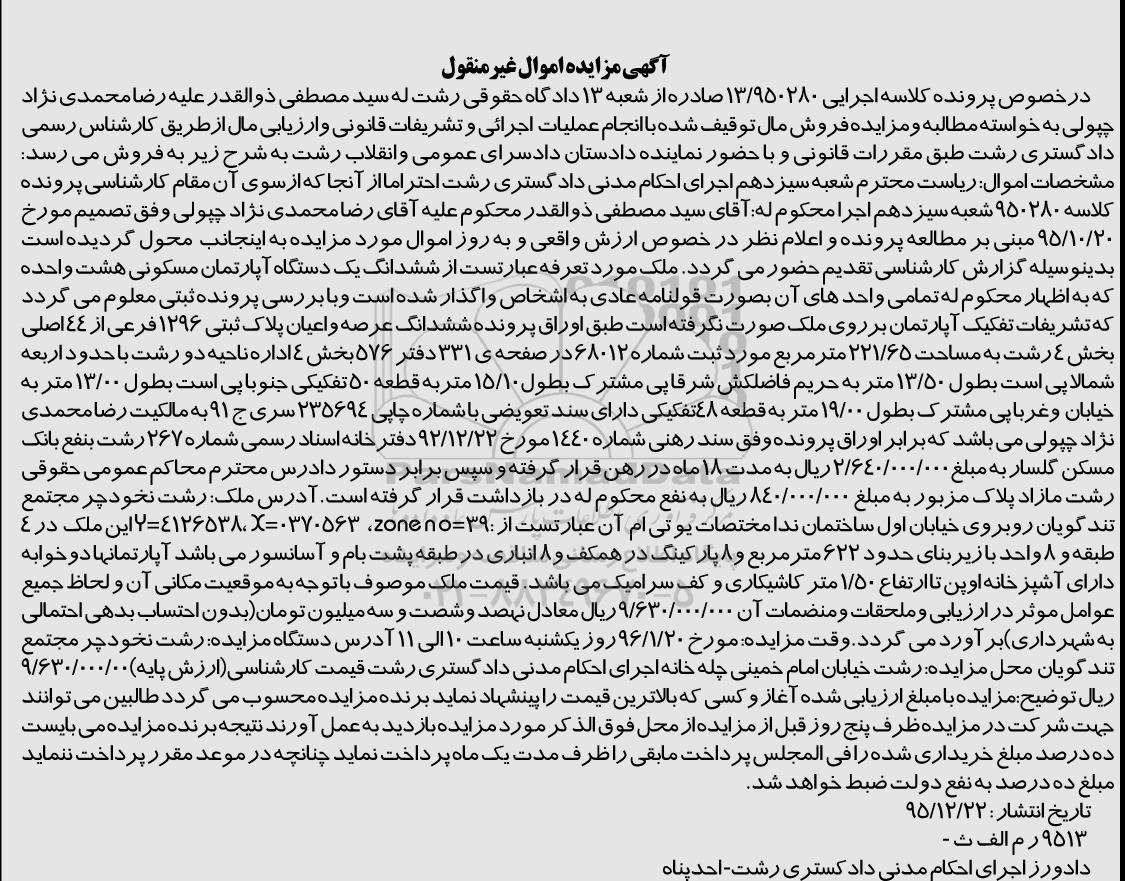 آگهی مزایده اموال غیر منقول
درخصوص پرونده کلاسه اجرایی ۱۳/۹۵۰۲۸۰ صادره از شعبه ۱۳ دادگاه حقوقی رشت له سید مصطفی ذوالقدر علیه رضا محمدی نژاد
چپولی به خواسته مطالبه ومزایده فروش مال توقیف شده باانجام عملیات اجرائی و تشریفات قانونی وارزیابی مال ازطریق کارشناس رسمی
دادگستری رشت طبق مقررات قانونی و با حضور نماینده دادستان دادسرای عمومی وانقلاب رشت به شرح زیر به فروش می رسد:
مشخصات اموال: ریاست محترم شعبه سیزدهم اجرای احکام مدنی دادگستری رشت احتراما از آنجا که ازسوی آن مقام کارشناسی پرونده
کلاسه ۹۵۰۲۸۰ شعبه سیزدهم اجرا محکوم له:آقای سید مصطفی ذوالقدر محکوم علیه آقای رضا محمدی نژاد چپولی وفق تصمیم مورخ
۹۵/۱۰/۲۰ مبنی بر مطالعه پرونده و اعلام نظر در خصوص ارزش واقعی و به روز اموال مورد مزایده به اینجانب محول گردیده است
بدینوسیله گزارش کارشناسی تقدیم حضور می گردد. ملک مورد تعرفه عبارتست از ششدانگ یک دستگاه آپارتمان مسکونی هشت واحده
که به اظهار محکوم له تمامی واحد های آن بصورت قولنامه عادی به اشخاص واگذار شده است وبا بررسی پرونده ثبتی معلوم می گردد
که تشریفات تفکیک آپارتمان بر روی ملک صورت نگرفته است طبق اوراق پرونده ششدانگ عرصه واعیان پلاک ثبتی ۱۲۹۶ فرعی از ٤٤اصلی
بخش ٤ رشت به مساحت ۲۲۱/۶۵ متر مربع مورد ثبت شماره ۶۸۰۱۲ در صفحه ی ۳۳۱ دفتر ۵۷۶ بخش ٤اداره ناحیه دو رشت با حدود اربعه
شمالا پی است بطول ۱۳/۵۰ متر به حریم فاضلکش شرقا پی مشترک بطول ۱۵/۱۰ متر به قطعه ۵۰ تفکیکی جنوبا پی است بطول ۱۳/۰۰ متر به
خیابان وغربا پی مشترک بطول ۱۹/۰۰ متر به قطعه ٤۸تفکیکی دارای سند تعویضی با شماره چاپی ۲۳۵۶۹٤ سری ج ۹۱ به مالکیت رضا محمدی
نژاد چپولی می باشد که برابر اوراق پرونده وفق سند رهنی شماره ۱٤٤۰ مورخ ۹۲/۱۲/۲۲ دفترخانه اسناد رسمی شماره ۲۶۷ رشت بنفع بانک
مسکن گلسار به مبلغ ۲/۶٤۰/۰۰۰/۰۰۰ ریال به مدت ۱۸ ماه در رهن قرار گرفته و سپس برابر دستور دادرس محترم محاکم عمومی حقوقی
رشت مازاد پلاک مزبور به مبلغ ۸٤۰/۰۰۰/۰۰۰ ریال به نفع محکوم له در بازداشت قرار گرفته است. آدرس ملک: رشت نخودچر مجتمع
تندگویان روبروی خیابان اول ساختمان ندا مختصات یو تی ام آن عبارتست از :zone no=۳۹، X=۰۳۷۰۵۶۳، Y=٤۱۲۶۵۳۸این ملک در ٤
طبقه و ۸ واحد با زیربنای حدود ۶۲۲ متر مربع و۸ پارکینگ در همکف و ۸ انباری در طبقه پشت بام و آسانسور می باشد آپارتمانها دوخوابه
دارای آشپزخانه اوپن تا ارتفاع ۱/۵۰ متر کاشیکاری و کف سرامیک می باشد. قیمت ملک موصوف با توجه به موقعیت مکانی آن و لحاظ جمیع
عوامل موثر در ارزیابی وملحقات ومنضمات آن ۹/۶۳۰/۰۰۰/۰۰۰ ریال معادل نهصد وشصت و سه میلیون تومان(بدون احتساب بدهی احتمالی
به شهرداری)برآورد می گردد.وقت مزایده:مورخ ۹۶/۱/۲۰ روز یکشنبه ساعت ۱۰ الی ۱۱ آدرس دستگاه مزایده: رشت نخودچر مجتمع
تندگویان محل مزایده: رشت خیابان امام خمینی چله خانه اجرای احکام مدنی دادگستری رشت قیمت کارشناسی(ارزش پایه)۹/۶۳۰/۰۰۰/۰۰
ریال توضیح:مزایده با مبلغ ارزیابی شده آغاز و کسی که بالاترین قیمت را پیشنهاد نماید برنده مزایده محسوب می گردد طالبین می توانند
جهت شرکت در مزایده ظرف پنج روز قبل از مزایده از محل فوق الذکر مورد مزایده بازدید به عمل آورند نتیجه برنده مزایده می بایست
ده درصد مبلغ خریداری شده رافی المجلس پرداخت مابقی را ظرف مدت یک ماه پرداخت نماید چنانچه در موعد مقرر پرداخت ننماید
مبلغ ده درصد به نفع دولت ضبط خواهد شد.
تاریخ انتشار : ۹۵/۱۲/۲۲
۹۵۱۳ ر م الف ث -
دادورز اجرای احکام مدنی دادگستری رشت-احدپناه
ParsNamadData
۰۲۱-۸۸۳٤۹۶۷۰-۵